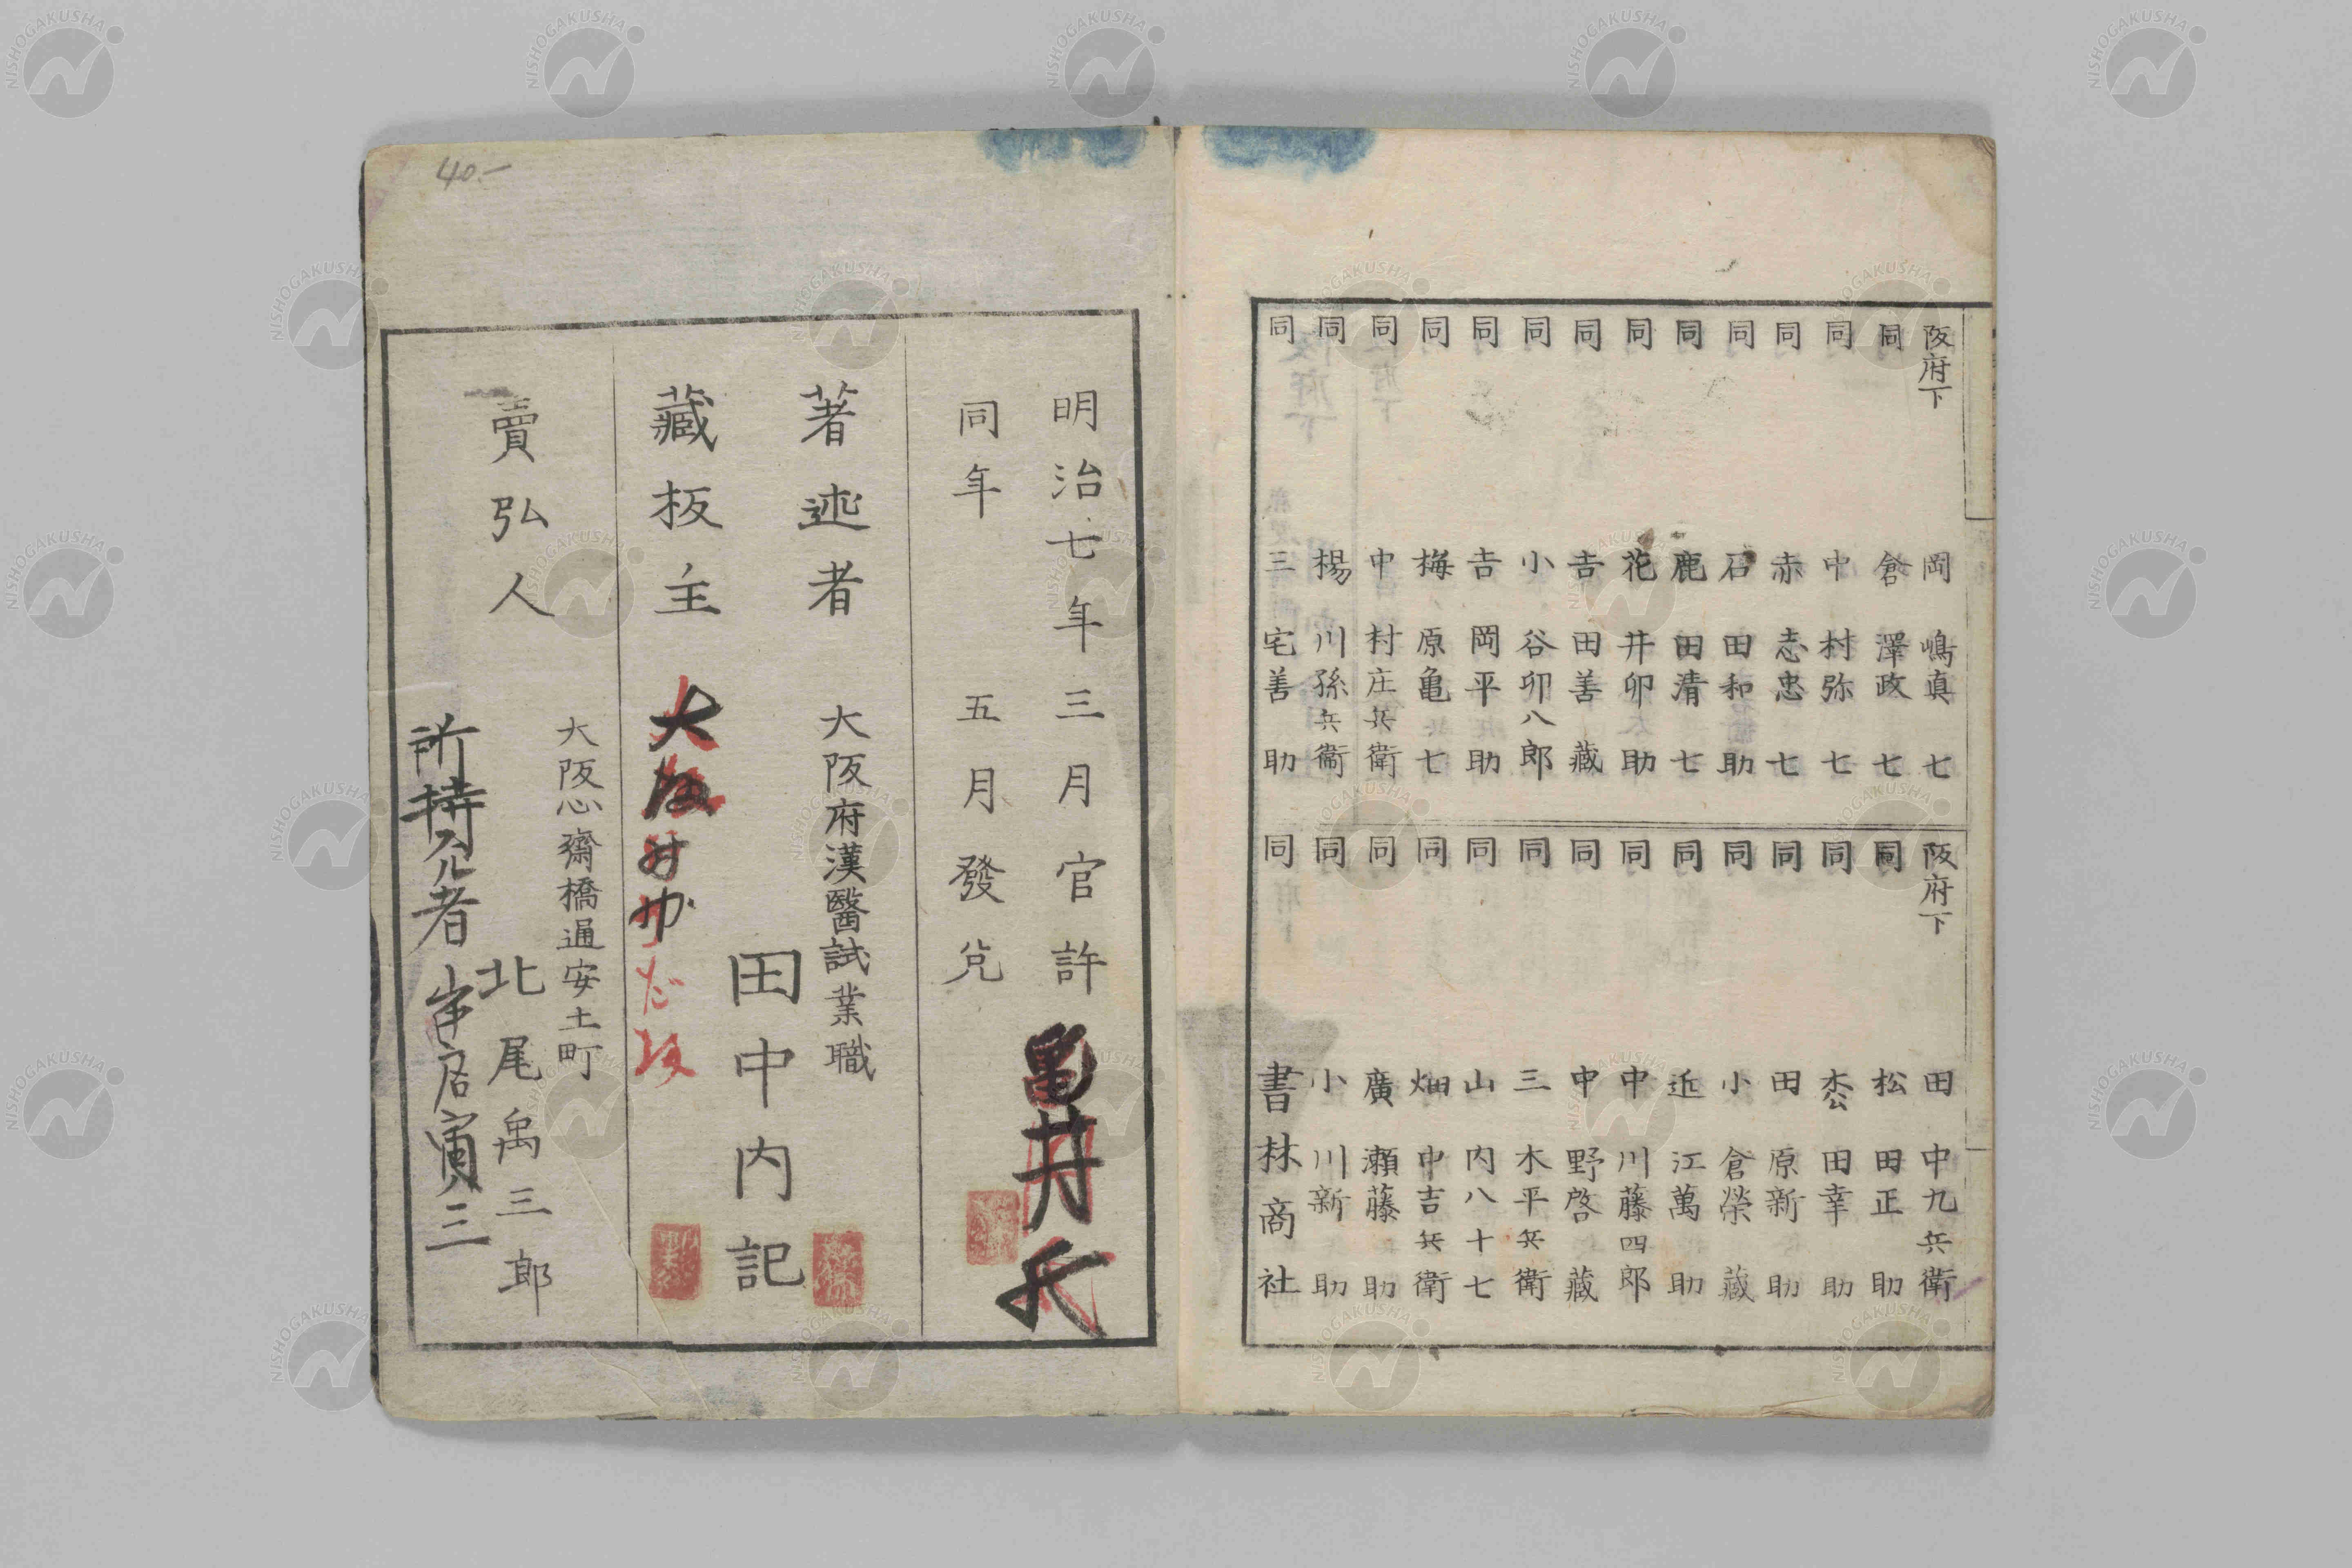 阪府下 岡嶋真七
同 倉澤政七
同 中村弥七
同 赤志忠七
同 石田和助
同 鹿田清七
同 花井卯助
同 吉田善藏
同 小谷卯八郎
同 吉岡平助
同 梅原亀七
同 中村庄兵衛
同 楊川孫兵衞
同 三宅善助
阪府下 田中九兵衛
同 松田正助
同 枩田幸助
同 田原新助
同 小倉榮藏
同 近江萬助
同 中川藤四郎
同 中野啓藏
同 三木平兵衛
同 山内八十七
同 畑中吉兵衛
同 廣瀬藤助
同 小川新助
同 書林商社
明治七年三月官許
亀井氏
同年五月發兌
著述者 大阪府漢醫試業職
田中内記
藏板主
大阪
賣弘人 大阪心齋橋通安土町
北尾禹三郎
所持允者
寅三
40.-
NISHOGAKUSHA